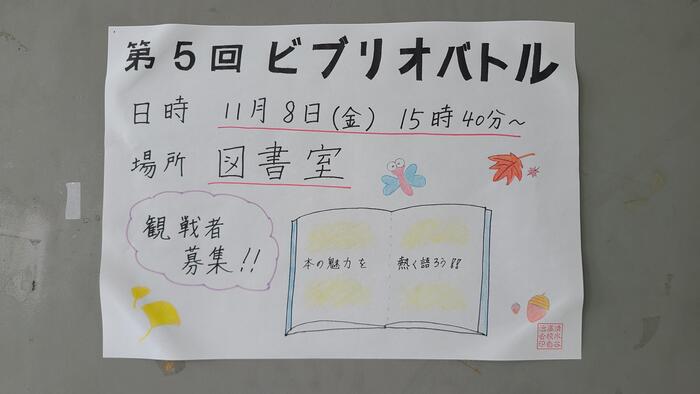 第5回 ビブリオバトル
日時 11月8日(金) 15時40分～
場所 図書室
観戦者
募集!!
本の魅力を 熱く語ろう!!